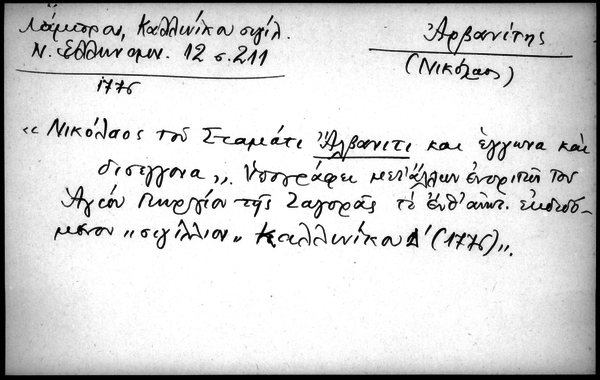 Λάμπρου, Καλλινίκου σιγίλ.
Ν. Ελληνομν. 12 σ. 211
1776
Ἀρβανίτης
(Νικόλαος)
«Νικόλαος τοῦ Σταμάτι Ἀλβανιτι και ἔγγωνα και
δισέγγονα». Υπογράφει μετ' ἄλλων ἐνοριτῶν του
Αγίου Γεωργίου τῆς Ζαγορᾶς το
μενον "σιγίλλιον" Καλλινίκου Δ' (1776)".